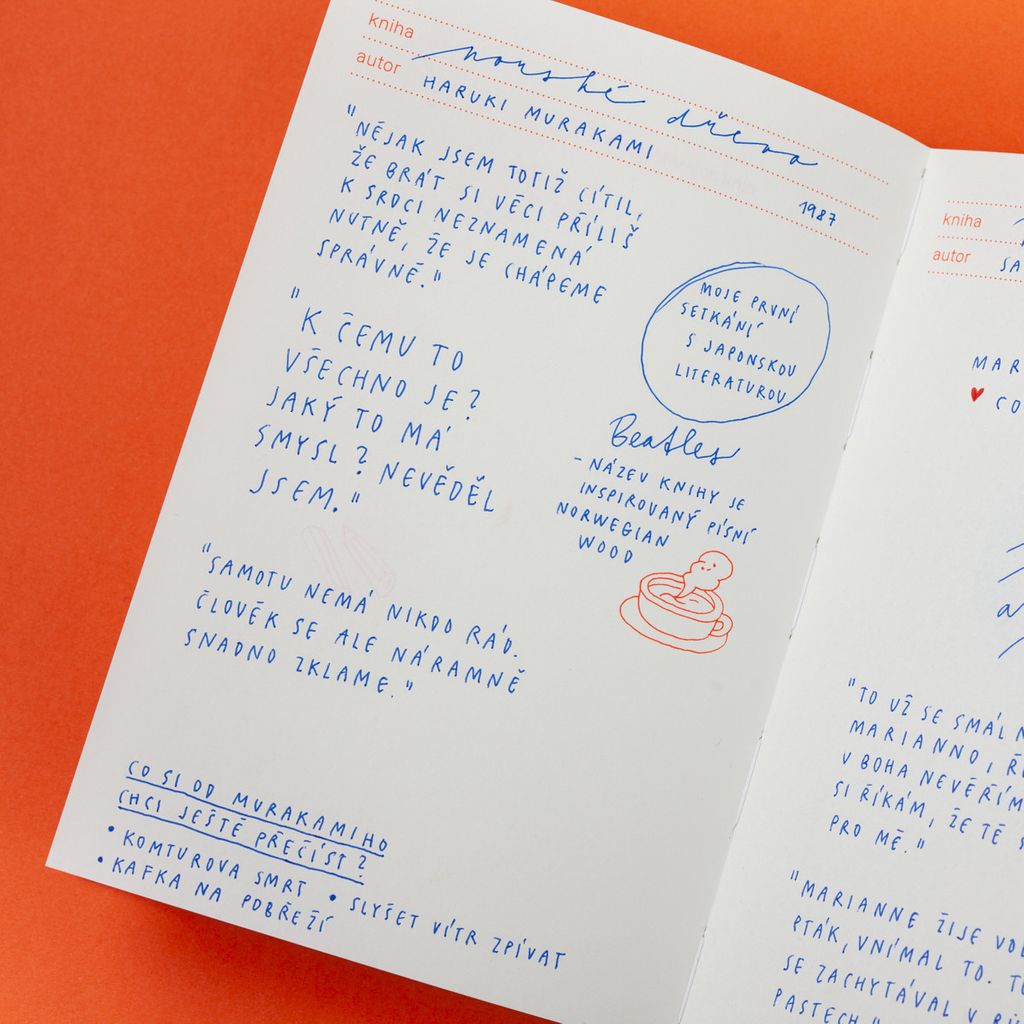 kniha norské dřevo
autor HARUKI MURAKAMI
1987
"NĚJAK JSEM TOTIŽ CÍTIL,
ŽE BRÁT SI VĚCI PŘÍLIŠ
K SRDCI NEZNAMENÁ
NUTNĚ, ŽE JE CHÁPEME
SPRÁVNĚ."
"K ČEMU TO
VŠECHNO JE?
JAKÝ TO MÁ
SMYSL? NEVĚDĚL
JSEM."
"SAMOTU NEMÁ NIKDO RÁD.
ČLOVĚK SE ALE NÁRAMNĚ
SNADNO ZKLAME."
MOJE PRVNÍ
SETKÁNÍ
S JAPONSKOU
LITERATUROU
Beatles
- NÁZEV KNIHY JE
INSPIROVANÝ PÍSNÍ
NORWEGIAN
WOOD
CO SI OD MURAKAMIHO
CHCI JEŠTĚ PŘEČÍST?
• KOMTUROVA SMRT • SLYŠET VÍTR ZPÍVAT
• KAFKA NA POBŘEŽÍ
kniha
autor
"TO UŽ SE SMÁL
MARIANNO,
V BOHA NEVĚŘÍM
SI ŘÍKÁM, ŽE TĚ
PRO MĚ."
"MARIANNE ŽIJE
PTÁK, VNÍMAL TO.
SE ZACHYTÁVAL V
PASTECH."